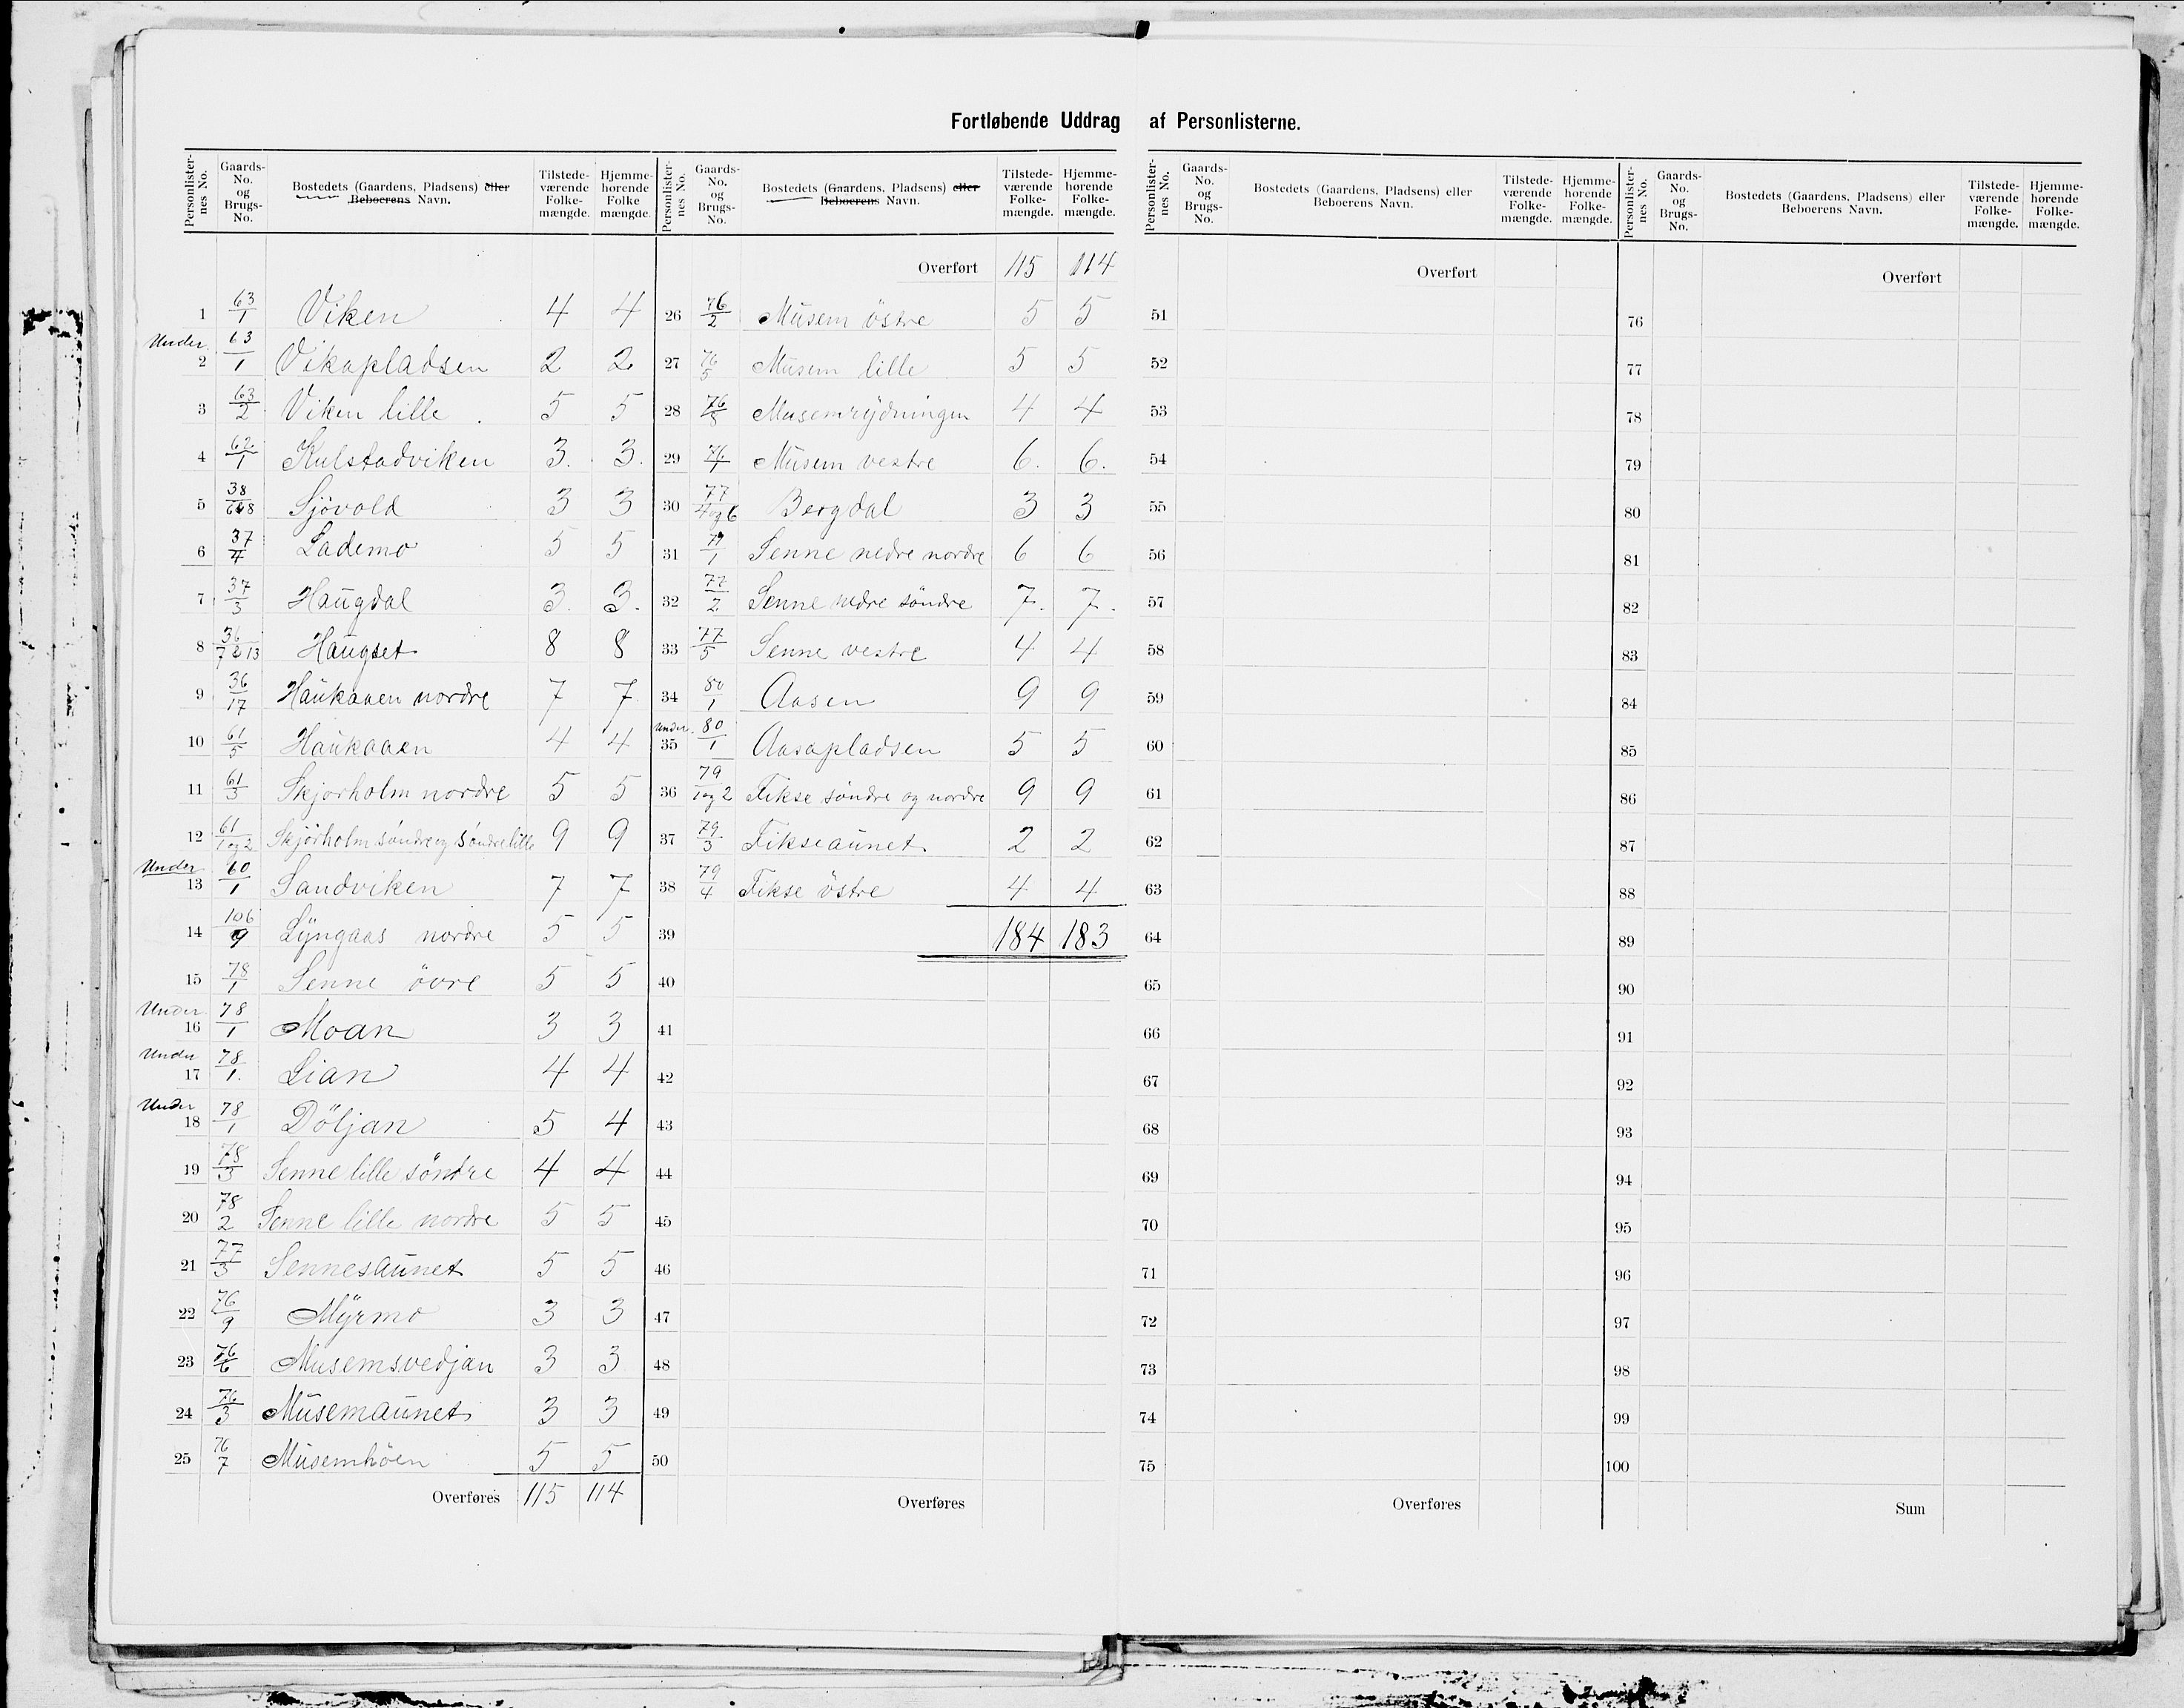 Fortløbende Uddrag af Personlisterne.
Personlister-nes No. Gaards-No. og Brugs-No. Bostedets (Gaardens, Pladsens) eller Beboerens Navn. Tilstede-værende Folke-mængde. Hjemme-hørende Folke mængde.
1 63/1 Viken 4 4
Under 2 63/1 Vikapladsen 2 2
3 63/2 Viken lille 5 5
4 62/1 Kulstadviken 3. 3.
5 38 Sjövold 3 3
6 37/4 Lademo 5 5
7 37/3 Haugdal 3. 3.
8 36 Haugset 8 8
9 36/17 Haukaaen nordre 7 7
10 61/5 Haukaaen 4 4
11 61/3 Skjorholm nordre 5 5
12 61/1 og 2 Skjörholm söndre og söndre lille 9 9
Under 13 60/1 Sandviken 7 7
14 106/9 Lyngaas nordre 5 5
15 78/1 Senne övre 5 5
Under 16 78/1 Moan 3 3
Under 17 78/1. Lian 4 4
Under 18 78/1 Döljan 5 4
19 78/3 Senne lille söndre 4 4
20 78/2 Senne lille nordre 5 5
21 77/3 Sennesaunet 5 5
22 76/9 Myrmo 3 3
23 76/6 Musemsvedjan 3 3
24 76/3 Musemaunet 3 3
25 76/7 Musemhöen 5 5
Overføres 115 114
Personlister-nes No. Gaards-No. og Brugs-No. Bostedets (Gaardens, Pladsens) eller Beboerens Navn. Tilstede-værende Folke-mængde. Hjemme-hørende Folke-mængde.
Overført 115 114
26 76/2 Musem östre 5 5
27 76/5 Musem lille 5 5
28 76/8 Musemrydningen 4 4
29 76/1 Musem vestre 6. 6.
30 77/4 og 6 Bergdal 3 3
31 77/1 Senne nedre nordre 6 6
32 77/2 Senne nedre söndre 7. 7.
33 77/5 Senne vestre 4 4
34 80/1 Aasen 9 9
Under 35 80/1 Aasapladsen 5 5
36 79/1 og 2 Fikse söndre og nordre 9 9
37 79/3 Fikseaunet 2 2
38 79/4 Fikse östre 4 4
39 184 183
40
41
42
43
44
45
46
47
48
49
50
Overføres
Personlister-nes No. Gaards-No. og Brugs-No. Bostedets (Gaardens, Pladsens) eller Beboerens Navn. Tilstede-værende Folke-mængde. Hjemme-hørende Folke-mængde.
Overført
51
52
53
54
55
56
57
58
59
60
61
62
63
64
65
66
67
68
69
70
71
72
73
74
75
Overføres
Personlister-nes No. Gaards-No. og Brugs-No. Bostedets (Gaardens, Pladsens) eller Beboerens Navn. Tilstede-værende Folke-mængde. Hjemme-hørende Folke-mængde.
Overført
76
77
78
79
80
81
82
83
84
85
86
87
88
89
90
91
92
93
94
95
96
97
98
99
100
Sum